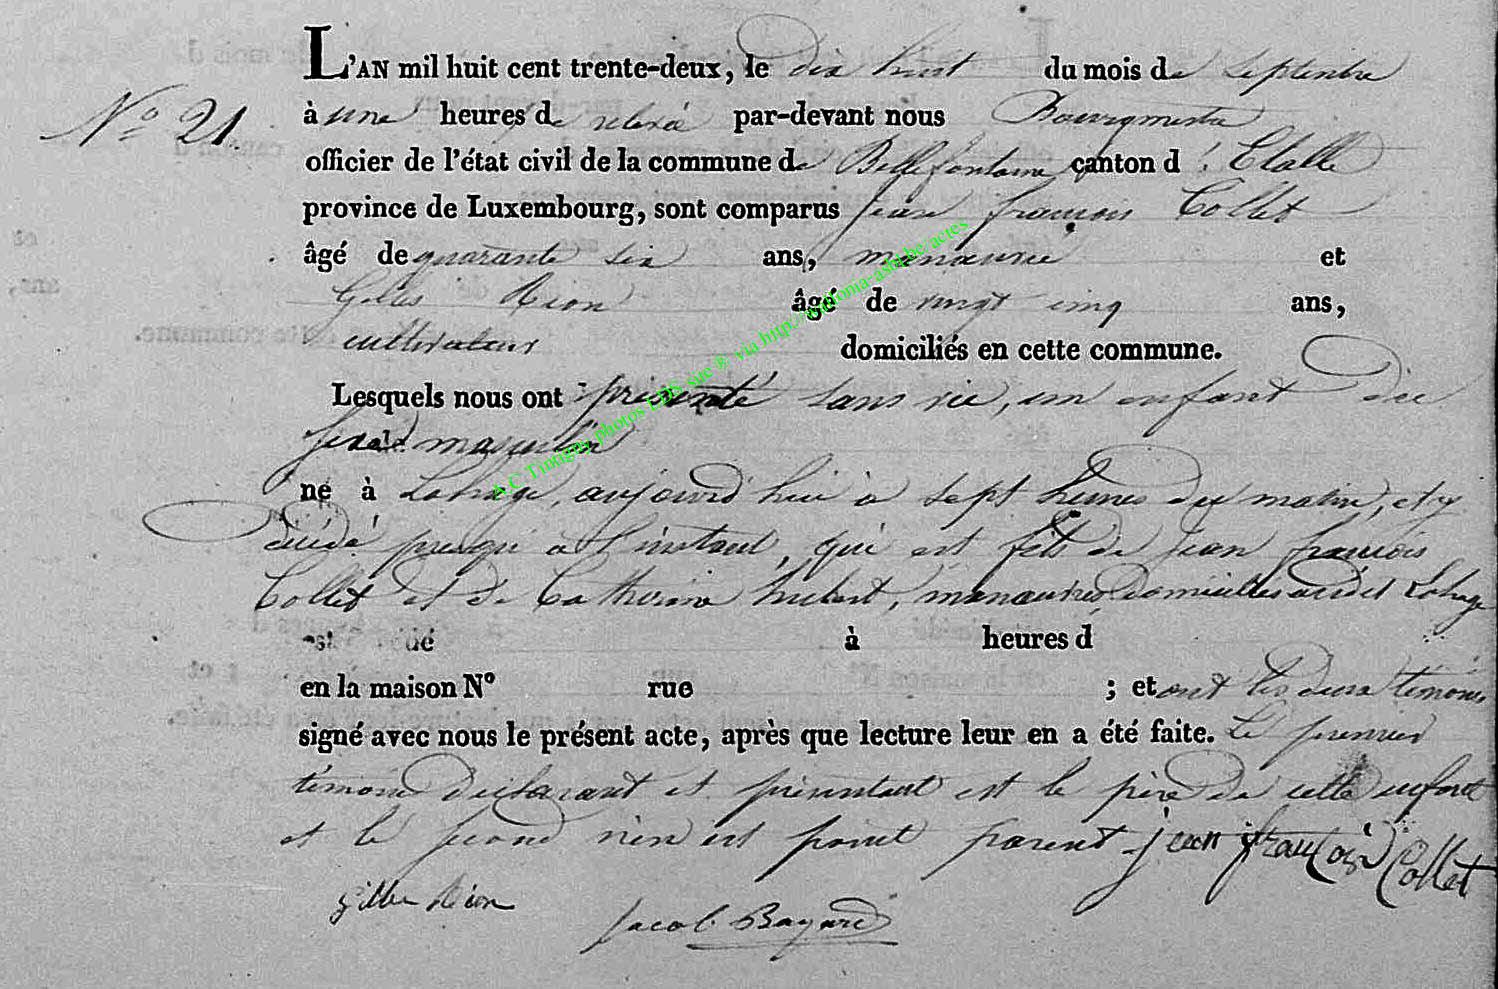 L'AN mil huit cent trente-deux, le dix huit du mois de Septembre
N° 21.
à une heures de relevée par-devant nous Bourgmestre
officier de l'état civil de la commune de Bellefontaine canton d'Etalle
province de Luxembourg, sont comparus jean françois Collet
âgé de quarante six ans, manœuvre et
Gilles Rion âgé de vingt cinq ans,
cultivateur domiciliés en cette commune.
Lesquels nous ont présenté sans vie, un enfant du
sexe masculin
né à Lahage, aujourd'hui à sept heures du matin, et y
décédé presqu'à l'instant, qui est fils de jean françois
Collet et de Catherine hubert, manœuvres domiciliés audit Lahage
est dé à heures d
en la maison N° rue ; et ont les deux témoins
signé avec nous le présent acte, après que lecture leur en a été faite. Le premier
témoin déclarant et présentant est le père de cette enfant
et le second n'en est point parent jean françois Collet
gilles Rion
Jacob Bayard
A.C Tintigny photos LDS site ® via http://wallonia-asbl.be/actes